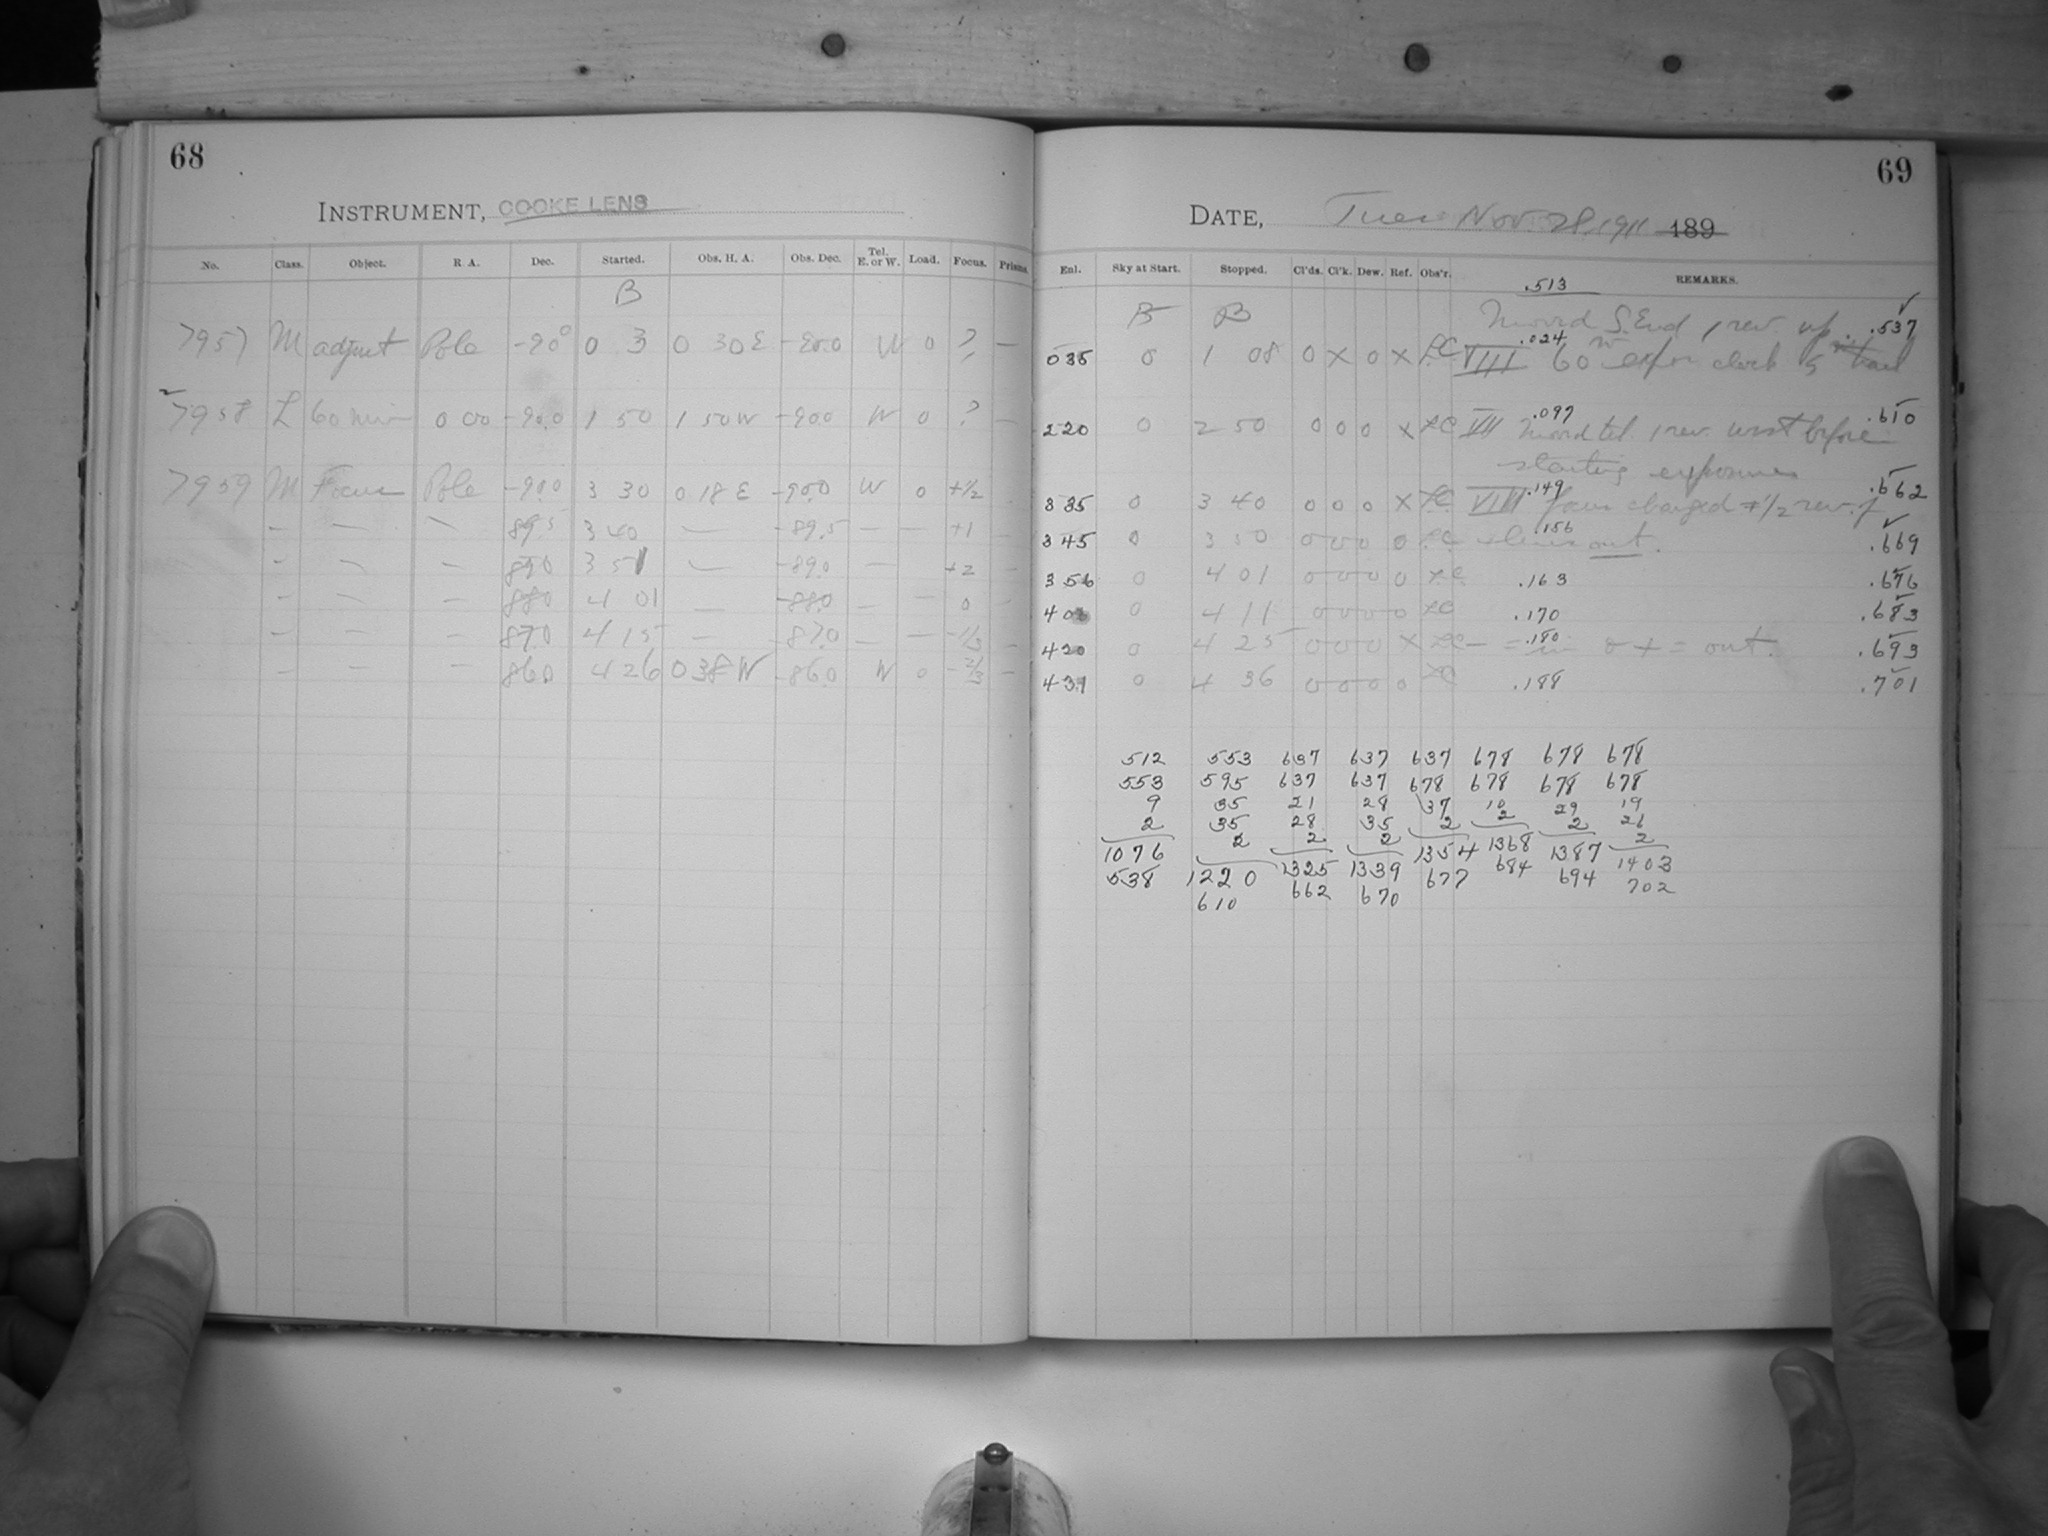 68
INSTRUMENT, COOKE LENS
No. Class. Object. R. A. Dec. Started. Obs. H. A. Obs. Dec. Tel. E. or W. Load. Focus. Prisms.
B
7957 M adjust Pole -90° 0 3 0 30 E -90.0 W 0 ? —
7958 L 60 min 0 00 -90.0 1 50 1 50 W -90.0 W 0 ? —
7959 M Focus Pole -90.0 3 30 0 18 E -90.0 W 0 +1/2
— — — 89.5 3 40 — -89.5 — — +1 —
— — — 89.0 3 51 — -89.0 — +2 —
— — — 88.0 4 01 — -88.0 — — 0 —
— — — 87.0 4 15 — -87.0 — — -1/3 —
— — — 86.0 4 26 0 38 W -86.0 W 0 -2/3 —
69
DATE, Tues Nov. 28 1911 189
Enl. Sky at Start. Stopped. Cl'ds. Cl'k. Dew. Ref. Obs'r. REMARKS.
.513
B B Moved S. End 1 rev. up .537
.024
035 0 1 08 0 X 0 X VIII 60 m expos clock
.097
220 0 2 50 0 0 0 X VII Moved tel. 1 rev. west before .610
starting exposures
.149
335 0 3 40 0 0 0 X VIII focus changed +1/2 rev. .662
.156
345 0 3 50 0 0 0 0 out. .669
356 0 4 01 0 0 0 0 .163 .676
40 0 4 11 0 0 0 0 .170 .683
.180
420 0 4 25 0 0 0 X — = in 0 + = out. .693
431 0 4 36 0 0 0 0 .188 .701
512 553 637 637 637 678 678 678
553 595 637 637 678 678 678 678
9 35 21 28 37 10 29 19
2 35 28 35 2 2 2 26
2 2 2 2
1076 1220 1325 1339 1354 1368 1387 1403
538 610 662 670 677 684 694 702